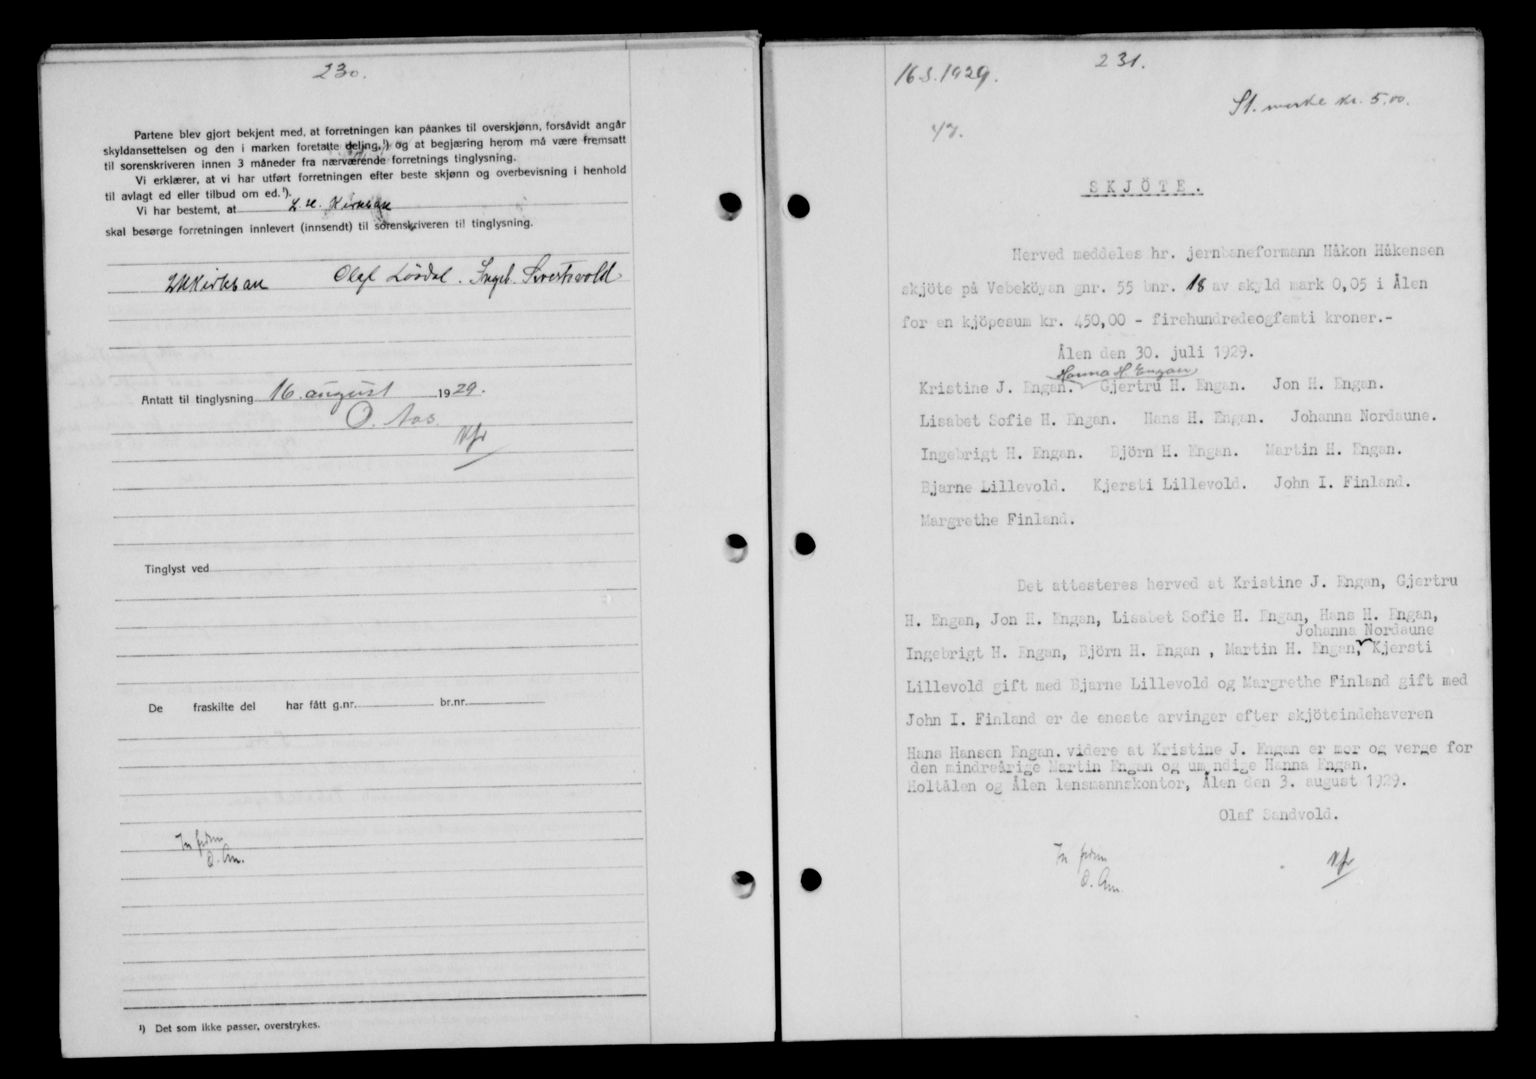 230.
Partene blev gjort bekjent med, at forretningen kan påankes til overskjønn, forsåvidt angår
skyldansettelsen og den i marken foretatte deling,¹) og at begjæring herom må være fremsatt
til sorenskriveren innen 3 måneder fra nærværende forretnings tinglysning.
Vi erklærer, at vi har utført forretningen efter beste skjønn og overbevisning i henhold
til avlagt ed eller tilbud om ed.¹).
Vi har bestemt, at
skal besørge forretningen innlevert (innsendt) til sorenskriveren til tinglysning.
Antatt til tinglysning 16. august 1929.
Tinglyst ved
De fraskilte del har fått g.nr. br.nr.
¹) Det som ikke passer, overstrykes.
231.
16 8. 1929.
St. merke kr. 5.00.
47.
SKJÖTE.
Herved meddeles hr. jernbaneformann Håkon Håkensen
skjöte på Vebeköyan gnr. 55 bnr. 18 av skyld mark 0,05 i Ålen
for en kjöpesum kr. 450,00 - firehundredeogfemti kroner.-
Ålen den 30. juli 1929.
Hanna H Engan
Kristine J. Engan. Gjertru H. Engan. Jon H. Engan.
Lisabet Sofie H. Engan. Hans H. Engan. Johanna Nordaune.
Ingebrigt H. Engan. Björn H. Engan. Martin H. Engan.
Bjarne Lillevold. Kjersti Lillevold. John I. Finland.
Margrethe Finland.
Det attesteres herved at Kristine J. Engan, Gjertru
H. Engan, Jon H. Engan, Lisabet Sofie H. Engan, Hans H. Engan,
Johanna Nordaune
Ingebrigt H. Engan, Björn H. Engan , Martin H. Engan, Kjersti
Lillevold gift med Bjarne Lillevold og Margrethe Finland gift med
John I. Finland er de eneste arvinger efter skjöteindehaveren
Hans Hansen Engan. videre at Kristine J. Engan er mor og verge for
den mindreårige Martin Engan og umyndige Hanna Engan.
Holtålen og Ålen lensmannskontor, Ålen den 3. august 1929.
Olaf Sandvold.